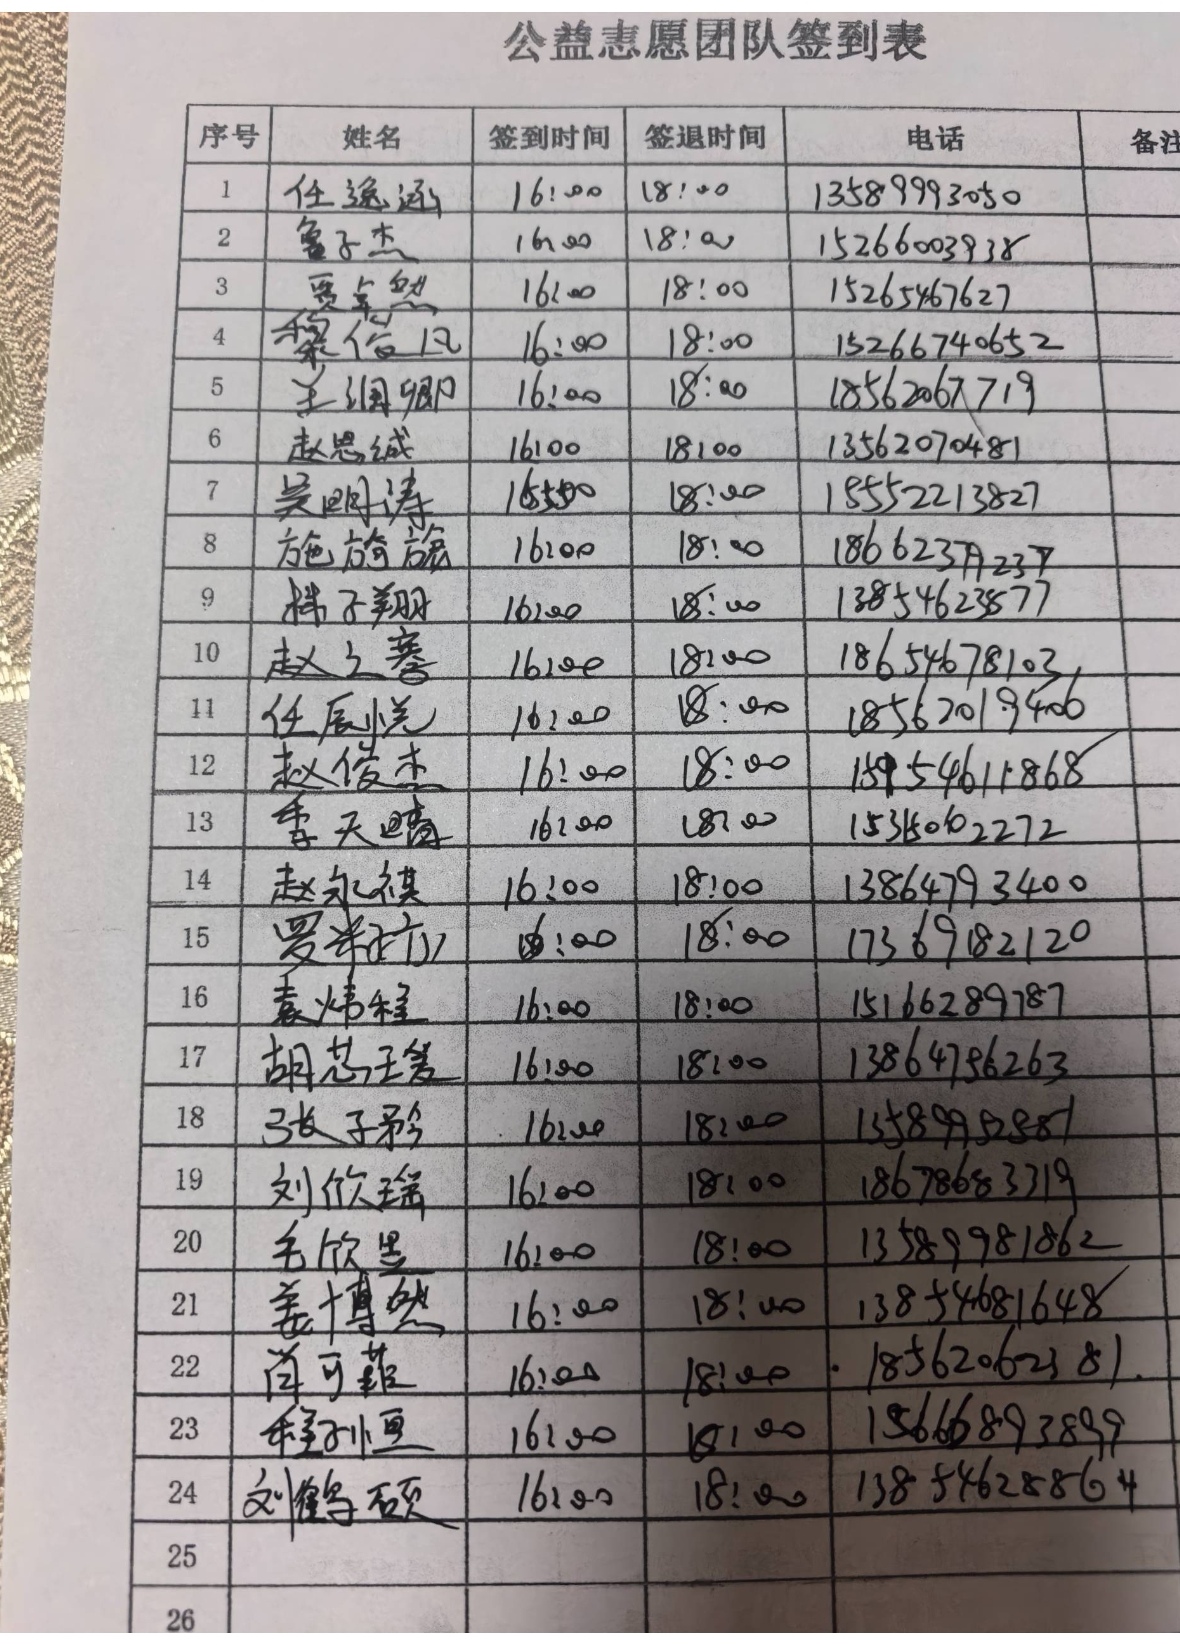 公益志愿团队签到表
序号 姓名 签到时间 签退时间 电话 备注
1 任逸涵 16:00 18:00 13589993050
2 鲁子杰 16:00 18:00 15266003938
3 贾卓然 16:00 18:00 15265467627
4 綦俗凡 16:00 18:00 15266740652
5 王润卿 16:00 18:00 18562067719
6 赵思诚 16:00 18:00 13562070481
7 吴明涛 18:00 15552213827
8 施旖旎 16:00 18:00 18662379237
9 子翔 16:00 18:00 13854623877
10 赵之骞 16:00 18:00 18654678103
11 任辰悦 16:00 18:00 18562019406
12 赵俊杰 16:00 18:00
13 季天晴 16:00 18:00
14 赵永祺 16:00 18:00 13864793400
15 罗 16:00 18:00 17369182120
16 袁炜程 16:00 18:00 15166289787
17 胡芯 16:00 18:00 13864756263
18 张子矜 16:00 18:00 13589952881
19 刘欣瑶 16:00 18:00 18678683319
20 毛欣昱 16:00 18:00 13589981862
21 姜博然 16:00 18:00 13854681648
22 可菲 16:00 18:00 18562062381
23 程子恒 16:00 18:00 15666893899
24 刘鹤硕 16:00 18:00 13854628864
25
26